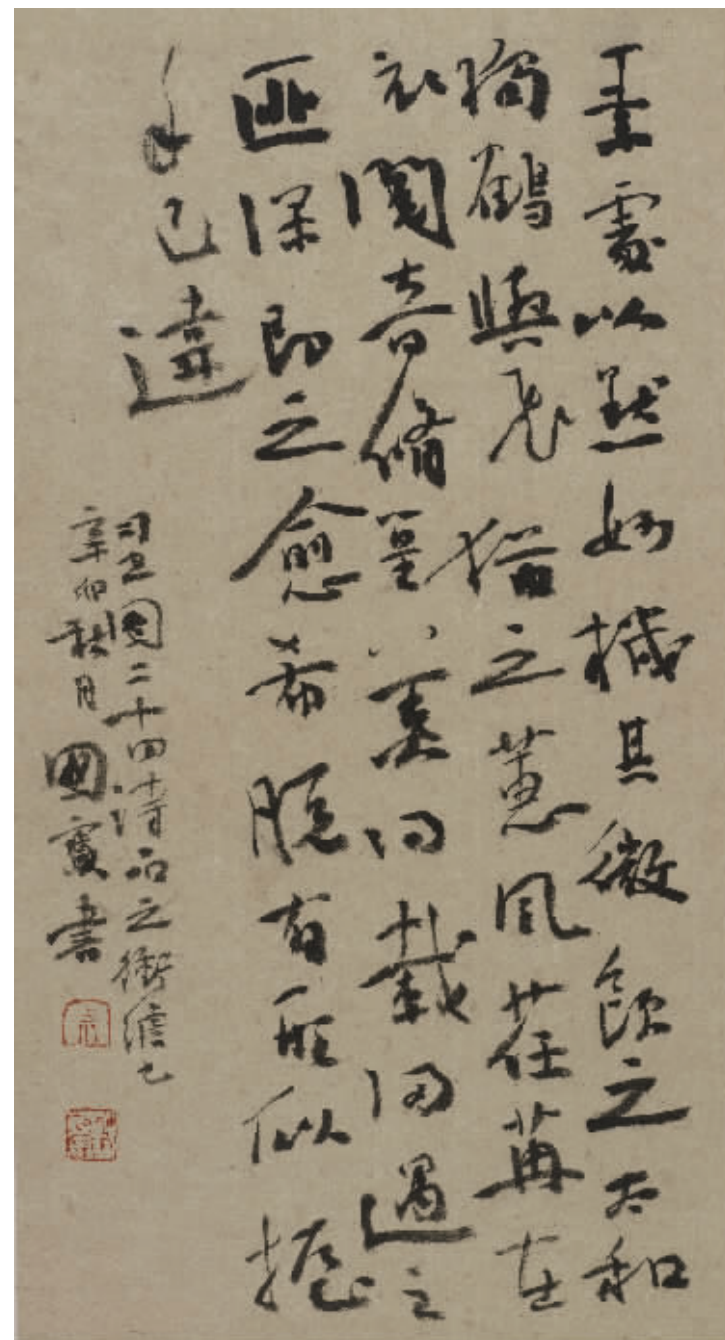 素處以默妙機其微飲之太和
獨鶴與飛猶之蕙風荏苒在
衣閱音脩篁美曰載歸遇之
匪深即之愈希脫有形似握
手已違
司空圖二十四詩品之衝澹也
辛卯秋月國寶書